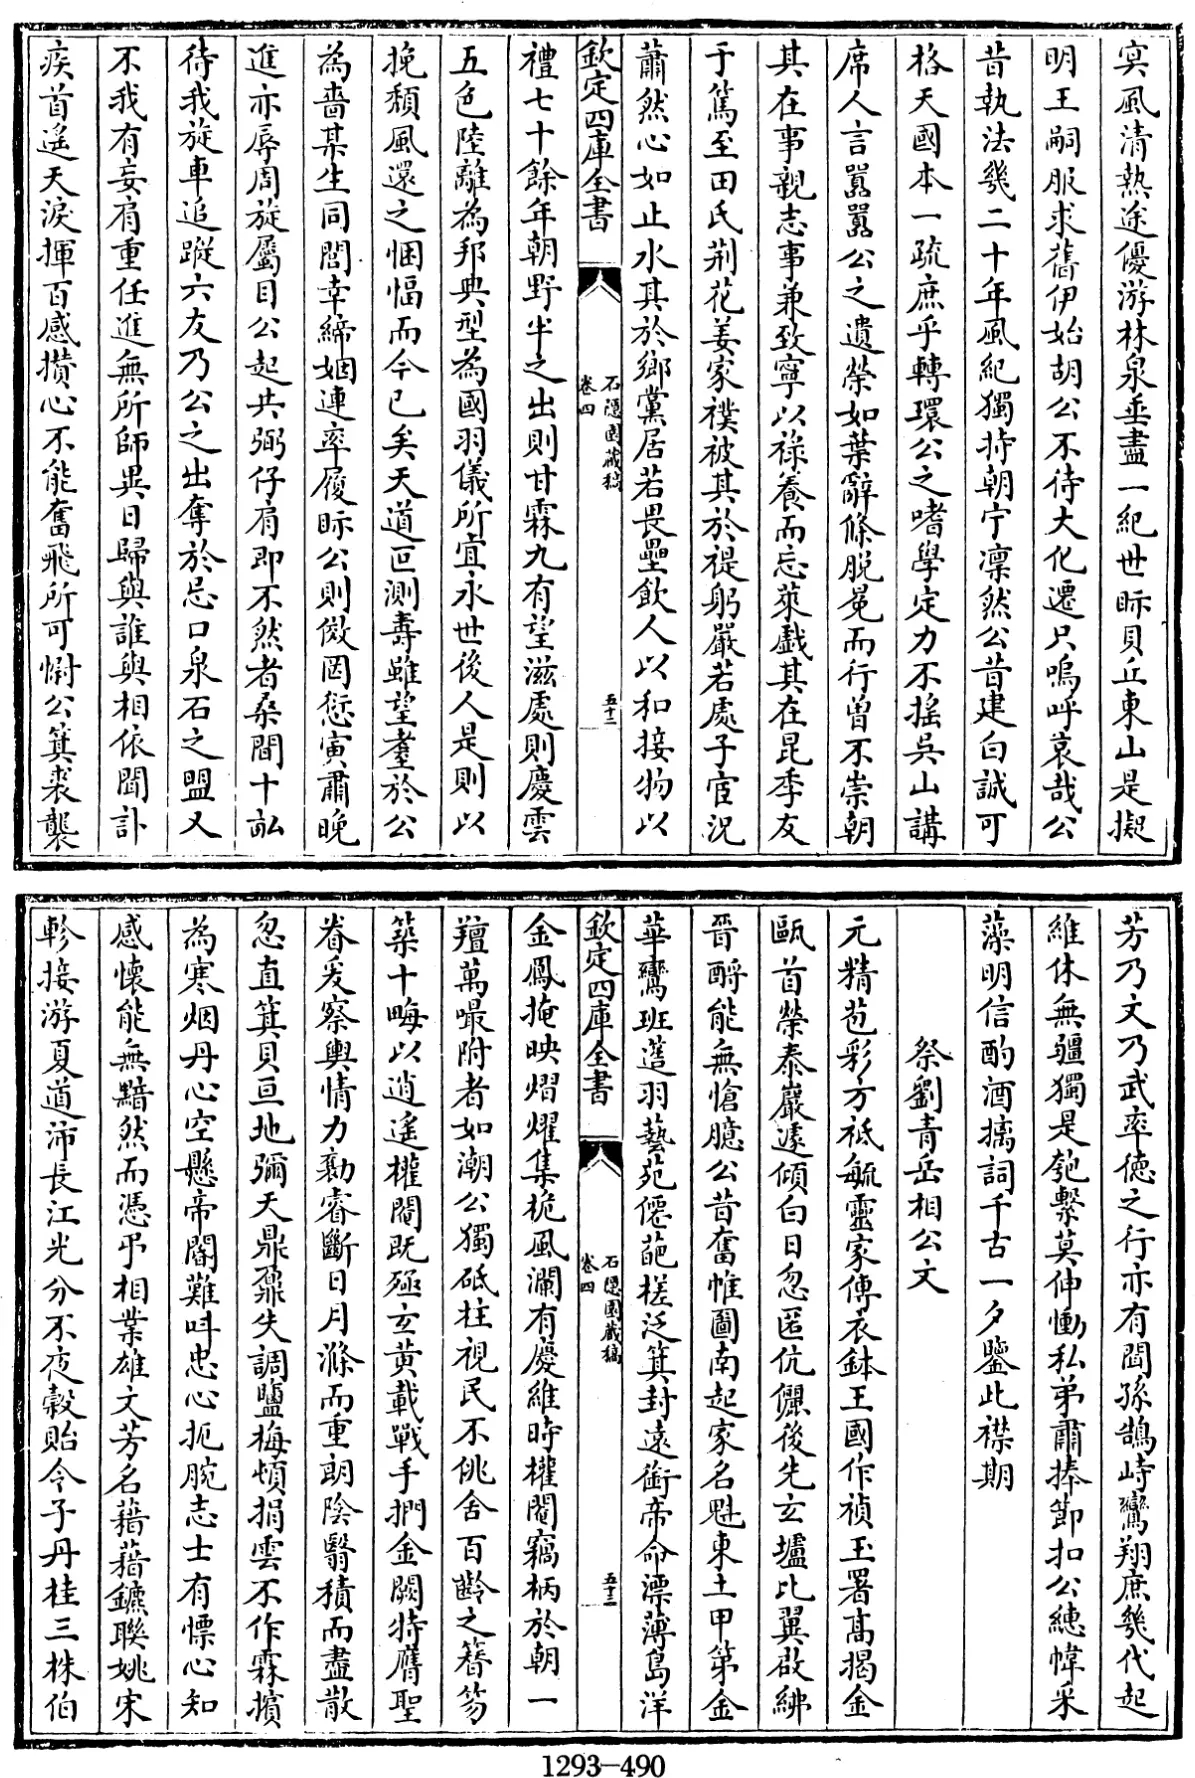 冥風清熱途優游林泉垂盡一紀世眎貝丘東山是擬
明王嗣服求舊伊始胡公不待大化遷只嗚呼哀哉公
昔執法幾二十年風紀獨持朝宁凜然公昔建白誠可
格天國本一疏庶乎轉環公之嗜學定力不搖吳山講
席人言囂囂公之遺榮如葉辭條脫冕而行曾不崇朝
其在事親志事兼致寧以祿養而忘萊戲其在昆季友
于篤至田氏荊花姜家襆被其於禔躬嚴若處子宦況
蕭然心如止水其於鄉黨居若畏壘飲人以和接物以
欽定四庫全書
石隱園藏稿
卷四
五十二
禮七十餘年朝野半之出則甘霖九有望滋處則慶雲
五色陸離為邦典型為國羽儀所宜永世後人是則以
挽頹風還之悃愊而今已矣天道叵測壽雖望耋於公
為嗇某生同閭幸締姻連率履眎公則倣罔愆寅肅晚
進亦辱周旋屬目公起共弼仔肩即不然者桑間十畝
待我旋車追蹤六友乃公之出奪於忌口泉石之盟又
不我有妄肩重任進無所師異日歸與誰與相依聞訃
疾首遙天淚揮百感攢心不能奮飛所可慰公箕裘襲
芳乃文乃武率德之行亦有聞孫鵠峙鸞翔庶幾代起
維休無疆獨是匏繫莫伸慟私弟肅捧節扣公繐幃采
藻明信酌酒摛詞千古一夕鑒此襟期
祭劉青岳相公文
元精苞彩方祗毓靈家傳衣鉢王國作禎玉署高揭金
甌首榮泰巖遽傾白日忽匿伉儷後先玄壚比翼啟紼
晉酹能無愴臆公昔奮惟圖南起家名魁東土甲第金
華鸞班簉羽藝苑僊葩槎泛箕封遠銜帝命漂薄島洋
欽定四庫全書
石隱園藏稿
卷四
五十三
金鳳掩映熠燿集桅風瀾有慶維時權閹竊柄於朝一
羶萬嘬附者如潮公獨砥柱視民不佻舍百齡之簪笏
築十畮以逍遙權閹既殛玄黃載戰手捫金闕特膺聖
眷爰察輿情力勷睿斷日月滌而重朗陰翳積而盡散
忽直箕貝亘地彌天鼎鼐失調鹽梅頓捐雲不作霖擯
為寒烟丹心空懸帝閽難叫忠心扼腕志士有慄心知
感懷能無黯然而憑弔相業雄文芳名藉藉鑣聯姚宋
軫接游夏道沛長江光分不夜榖貽令子丹桂三株伯
1293-490